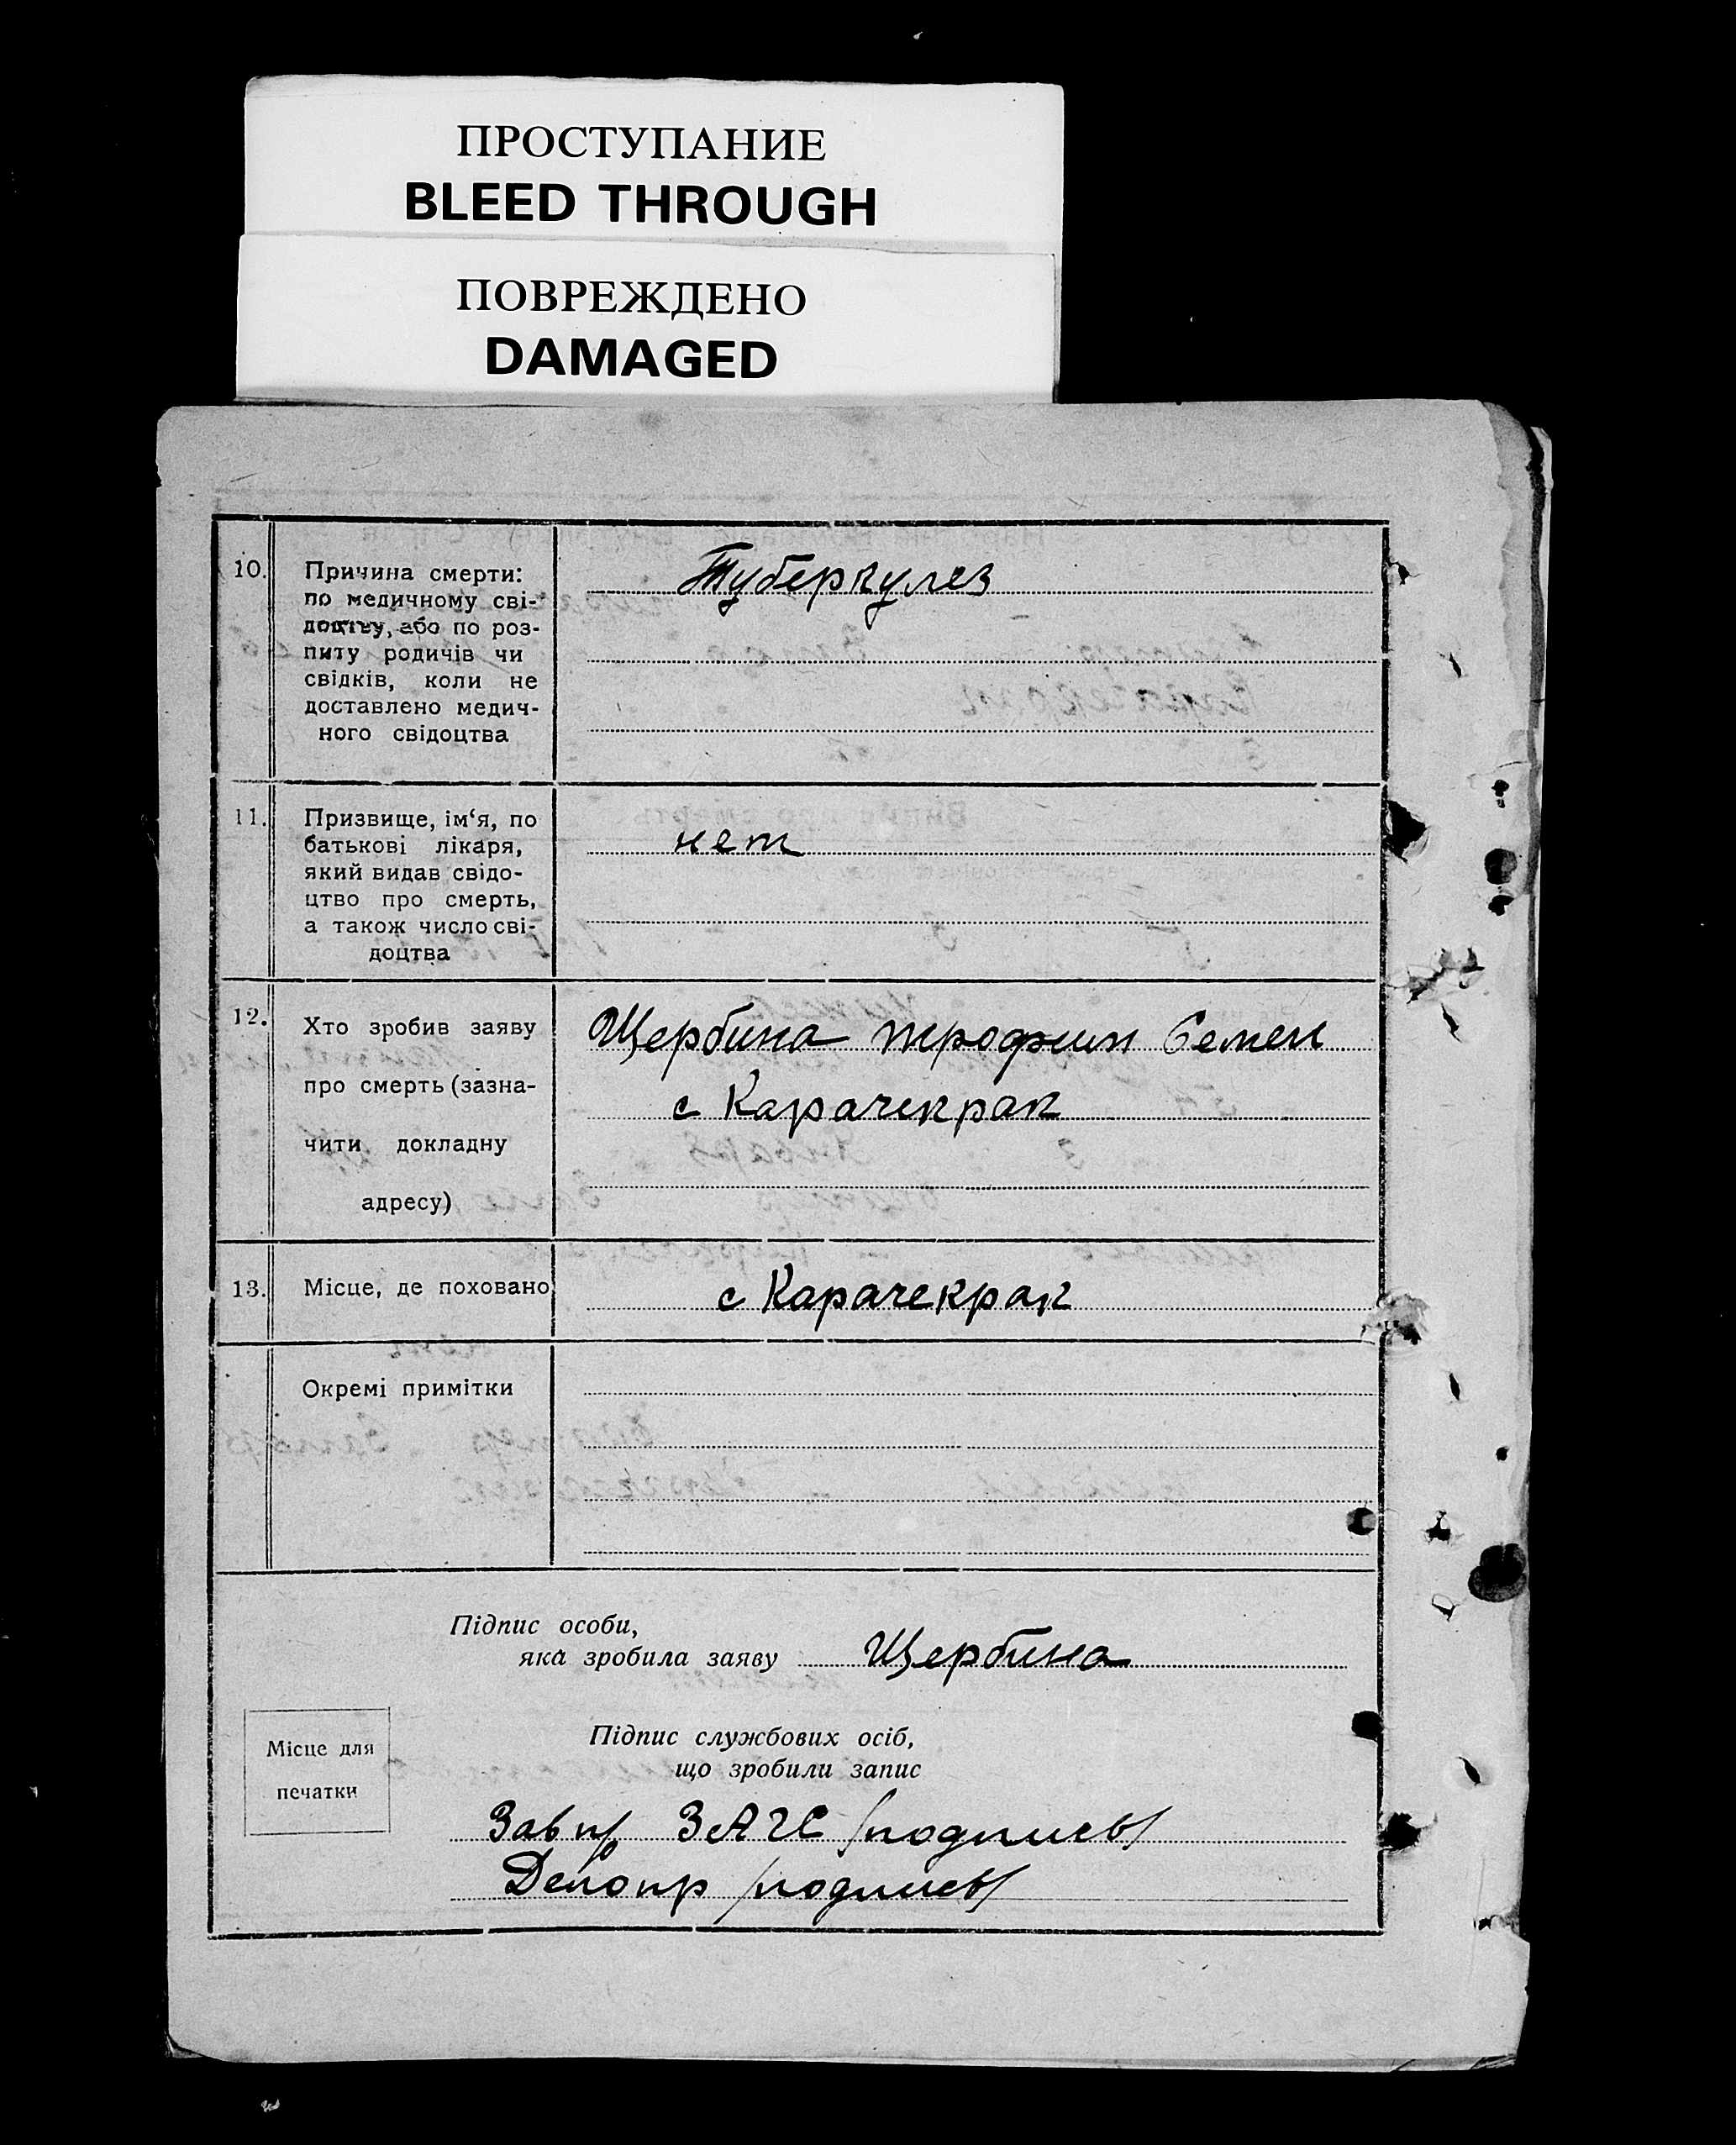 ПРОСТУПАНИЕ
BLEED THROUGH
ПОВРЕЖДЕНО
DAMAGED
10. Причина смерти: Туберкулез
по медичному сві-
доцтву, або по роз-
питу родичів чи
свідків, коли не
доставлено медич-
ного свідоцтва
11. Призвище, ім‘я, по
батькові лікаря, нет
який видав свідо-
цтво про смерть,
а також число сві-
доцтва
12. Хто зробив заяву Щербина трофим Семен
про смерть (зазна- с Карачекрак
чити докладну
адресу)
13. Місце, де поховано с Карачекрак
Окремі примітки
Підпис особи,
яка зробила заяву Щербина
Підпис службових осіб,
що зробили запис
Місце для
печатки
Зав п/р ЗАГС /подпись/
Делопр /подпись/